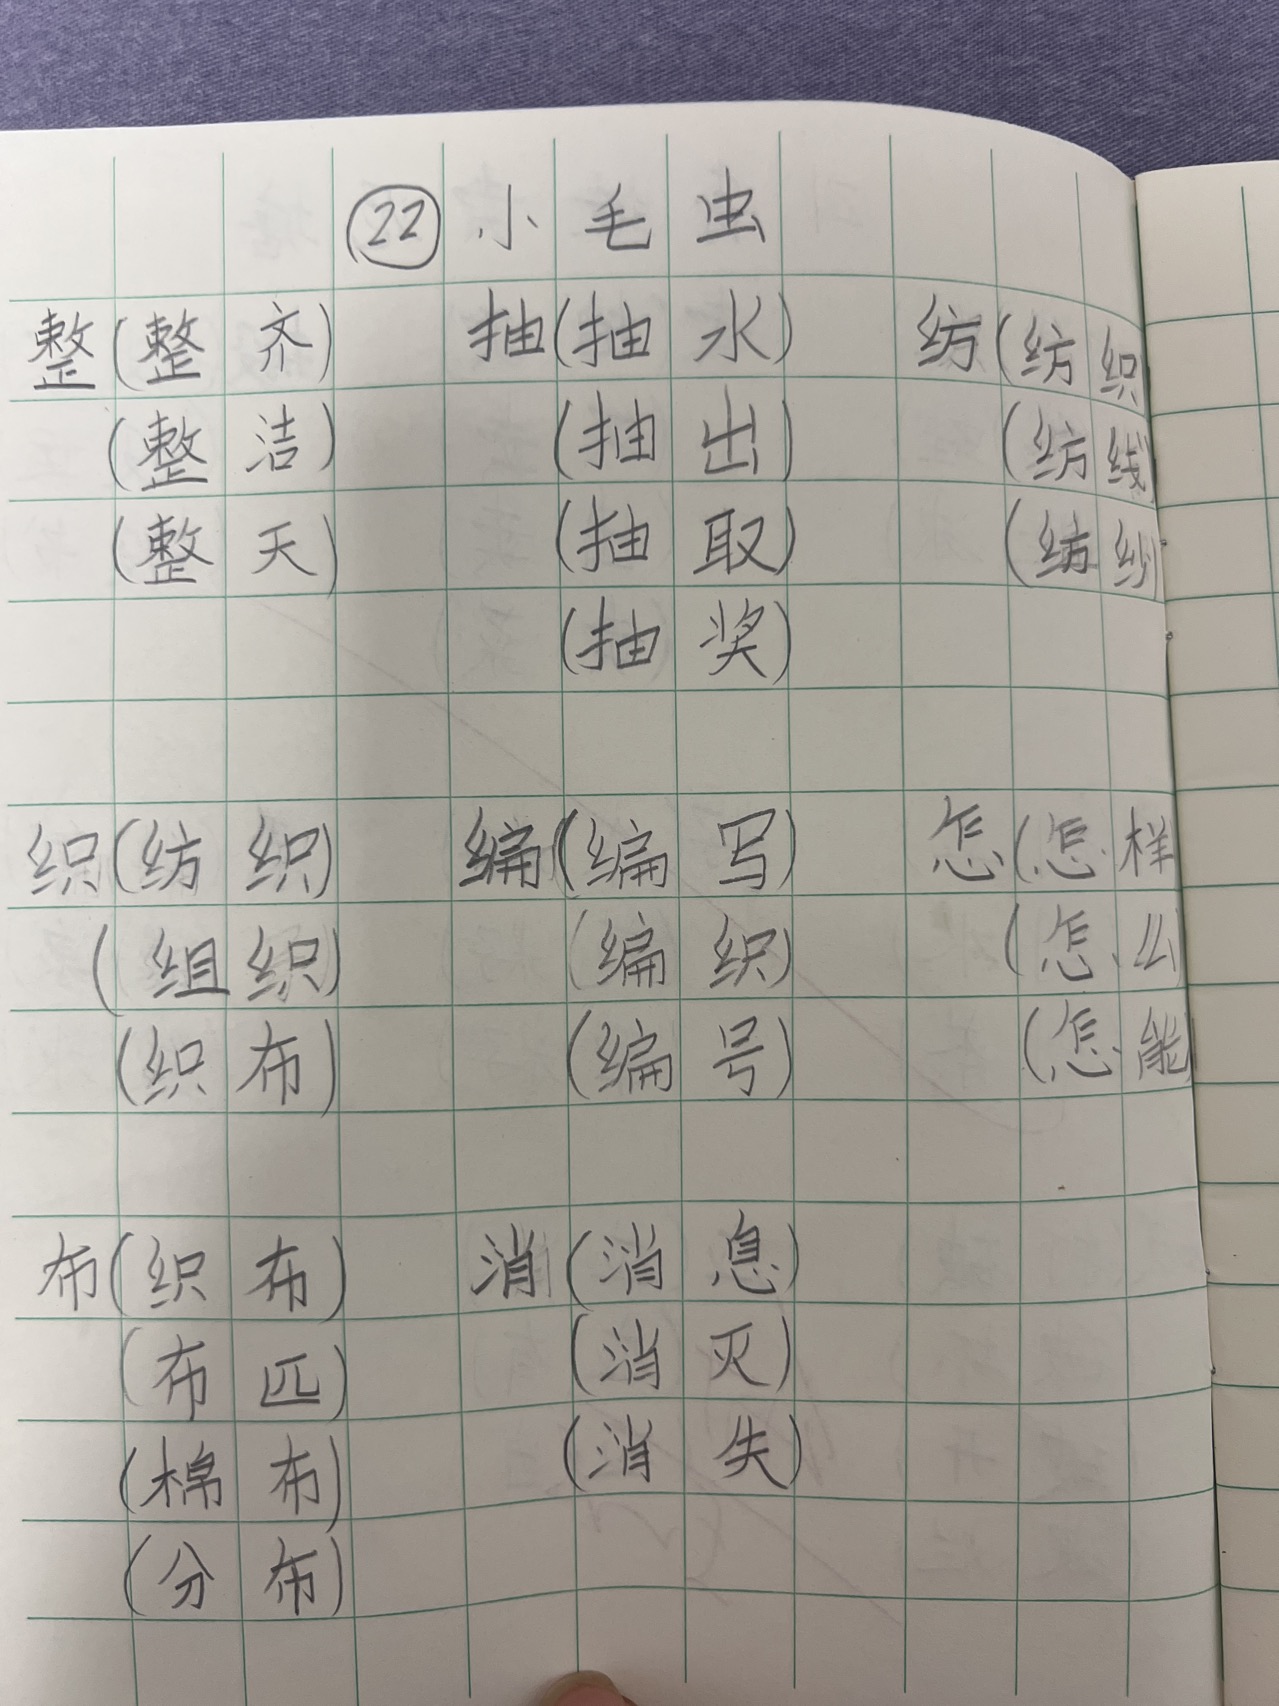 22 小毛虫
整(整齐) 抽(抽水) 纺(纺织
(整洁) (抽出) (纺线)
(整天) (抽取) (纺纱)
(抽奖)
织(纺织) 编(编写) 怎(怎样
(组织) (编织) (怎么
(织布) (编号) (怎能)
布(织布) 消(消息)
(布匹) (消灭)
(棉布) (消失)
(分布)